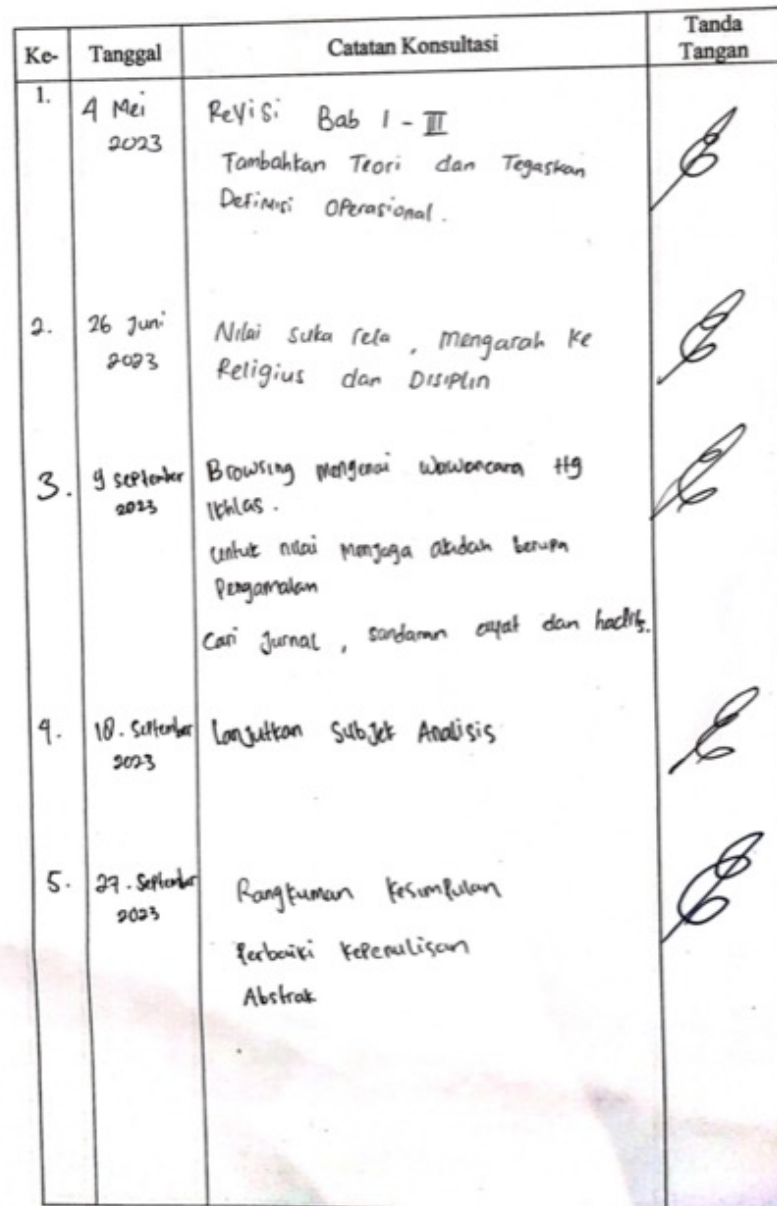 Ke- Tanggal Catatan Konsultasi Tanda Tangan
1. 4 Mei 2023 Revisi Bab I - III
Tambahkan Teori dan Tegaskan
Definisi Operasional.
2. 26 Juni 2023 Nilai suka rela, mengarah ke
Religius dan Disiplin
3. 9 September 2023 Browsing mengenai wawancara ttg
Ikhlas.
untuk nilai menjaga akidah berupa
Pengamalan
Cari Jurnal, sandaran ayat dan hadits.
4. 18. September 2023 Lanjutkan Subjek Analisis
5. 27. September 2023 Rangkuman Kesimpulan
Perbaiki Kepenulisan
Abstrak